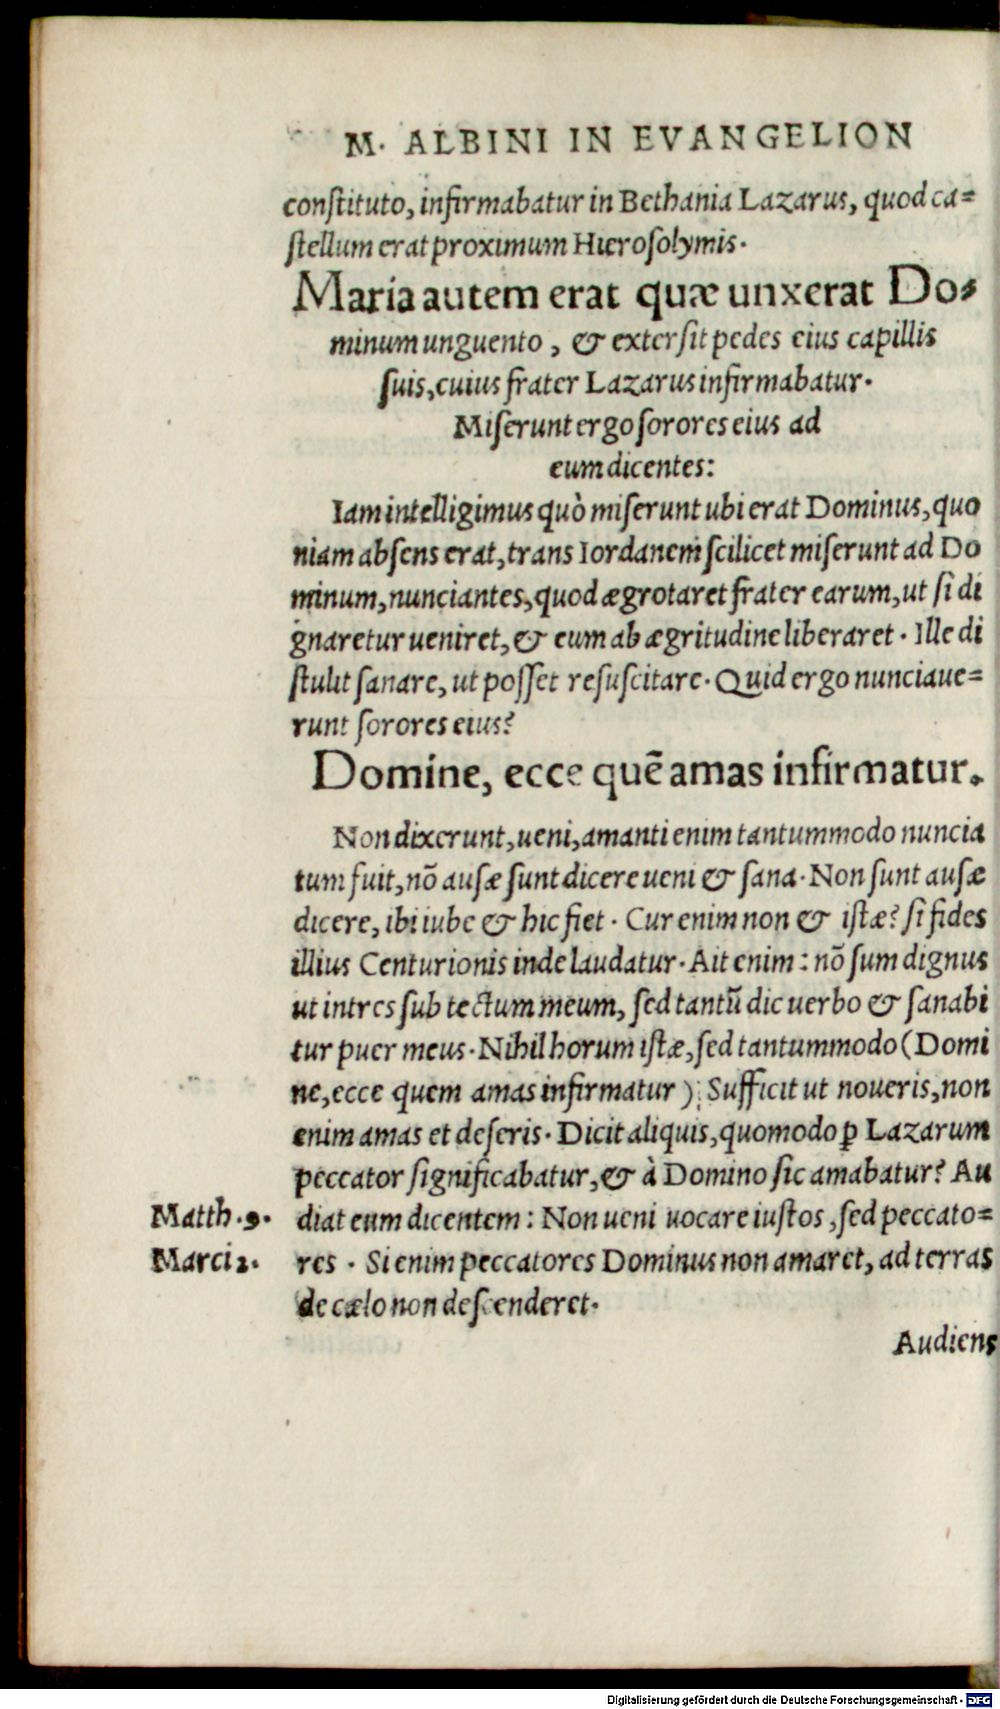 M. ALBINI IN EVANGELION
conſtituto, infirmabatur in Bethania Lazarus, quod ca=
ſtellum erat proximum Hieroſolymis.
Maria autem erat quæ unxerat Do⸗
minum unguento, & exterſit pedes eius capillis
ſuis, cuius frater Lazarus infirmabatur.
Miſerunt ergo ſorores eius ad
eum dicentes:
Iam intelligimus quò miſerunt ubi erat Dominus, quo
niam abſens erat, trans Iordanem ſcilicet miſerunt ad Do
minum, nunciantes, quod ægrotaret frater earum, ut ſi di
gnaretur ueniret, & eum ab ægritudine liberaret. Ille di
ſtulit ſanare, ut poſſet reſuſcitare. Quid ergo nunciaue=
runt ſorores eius?
Domine, ecce quē amas infirmatur.
Non dixerunt, ueni, amanti enim tantummodo nuncia
tum fuit, nō auſæ ſunt dicere ueni & ſana. Non ſunt auſæ
dicere, ibi iube & hic fiet. Cur enim non & iſtæ? ſi fides
illius Centurionis inde laudatur. Ait enim: nō ſum dignus
ut intres ſub tectum meum, ſed tantū dic uerbo & ſanabi
tur puer meus. Nihil horum iſtæ, ſed tantummodo (Domi
ne, ecce quem amas infirmatur) Sufficit ut noueris, non
enim amas et deſeris. Dicit aliquis, quomodo ꝑ Lazarum
peccator ſignificabatur, & à Domino ſic amabatur? Au
Matth. 9. diat eum dicentem: Non ueni uocare iuſtos, ſed peccato=
Marci 2. res. Si enim peccatores Dominus non amaret, ad terras
de cælo non deſcenderet.
Audiens
Digitalisierung gefördert durch die Deutsche Forschungsgemeinschaft - DFG